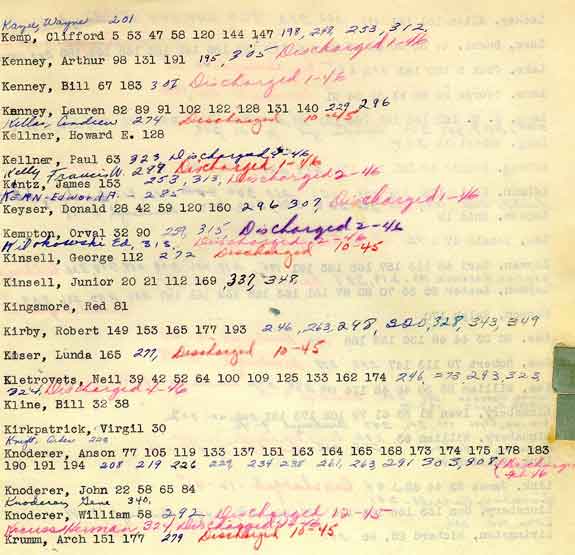 Kaye, Wayne 201
Kemp, Clifford 5 53 47 58 120 144 147 198, 248, 253, 312,
Kenney, Arthur 98 131 191 195, 305 Discharged 1-46
Kenney, Bill 67 183 301 Discharged 1-46
Kenney, Lauren 82 89 91 102 122 128 131 140 229 296
Keller Andrew 274 Discharged 10-45
Kellner, Howard E. 128
Kellner, Paul 63 323 Discharged 2-46
Kelly Francis W. 299 Discharged 1-46
Kentz, James 153 253, 313, Discharged 2-46
Kern-Edward A. - 285
Keyser, Donald 28 42 59 120 160 296 307, Discharged 1-46
Kempton, Orval 32 90 259, 315, Discharged 2-46
Ed, 313, Discharged 2-46
Kinsell, George 112 272 Discharged 10-45
Kinsell, Junior 20 21 112 169 337, 348,
Kingsmore, Red 81
Kirby, Robert 149 153 165 177 193 246, 263, 298, 320, 328, 343, 349
Kiser, Lunda 165 277, Discharged 10-45
Kletrovets, Neil 39 42 52 64 100 109 125 133 162 174 246, 273, 293, 323,
324, Discharged 2-46
Kline, Bill 32 38
Kirkpatrick, Virgil 30
Knoderer, Anson 77 105 119 133 137 151 163 164 165 168 173 174 175 178 183
190 191 194 208 219 226 229, 234 238 261, 263 291 303, 308, Discharged
2-46
Knoderer, John 22 58 65 84
Knoderer, Gene 340,
Knoderer, William 58 292 Discharged 12-45
Krauss Herman, 324, Discharged 2-46
Krumm, Arch 151 177 279 Discharged 10-45